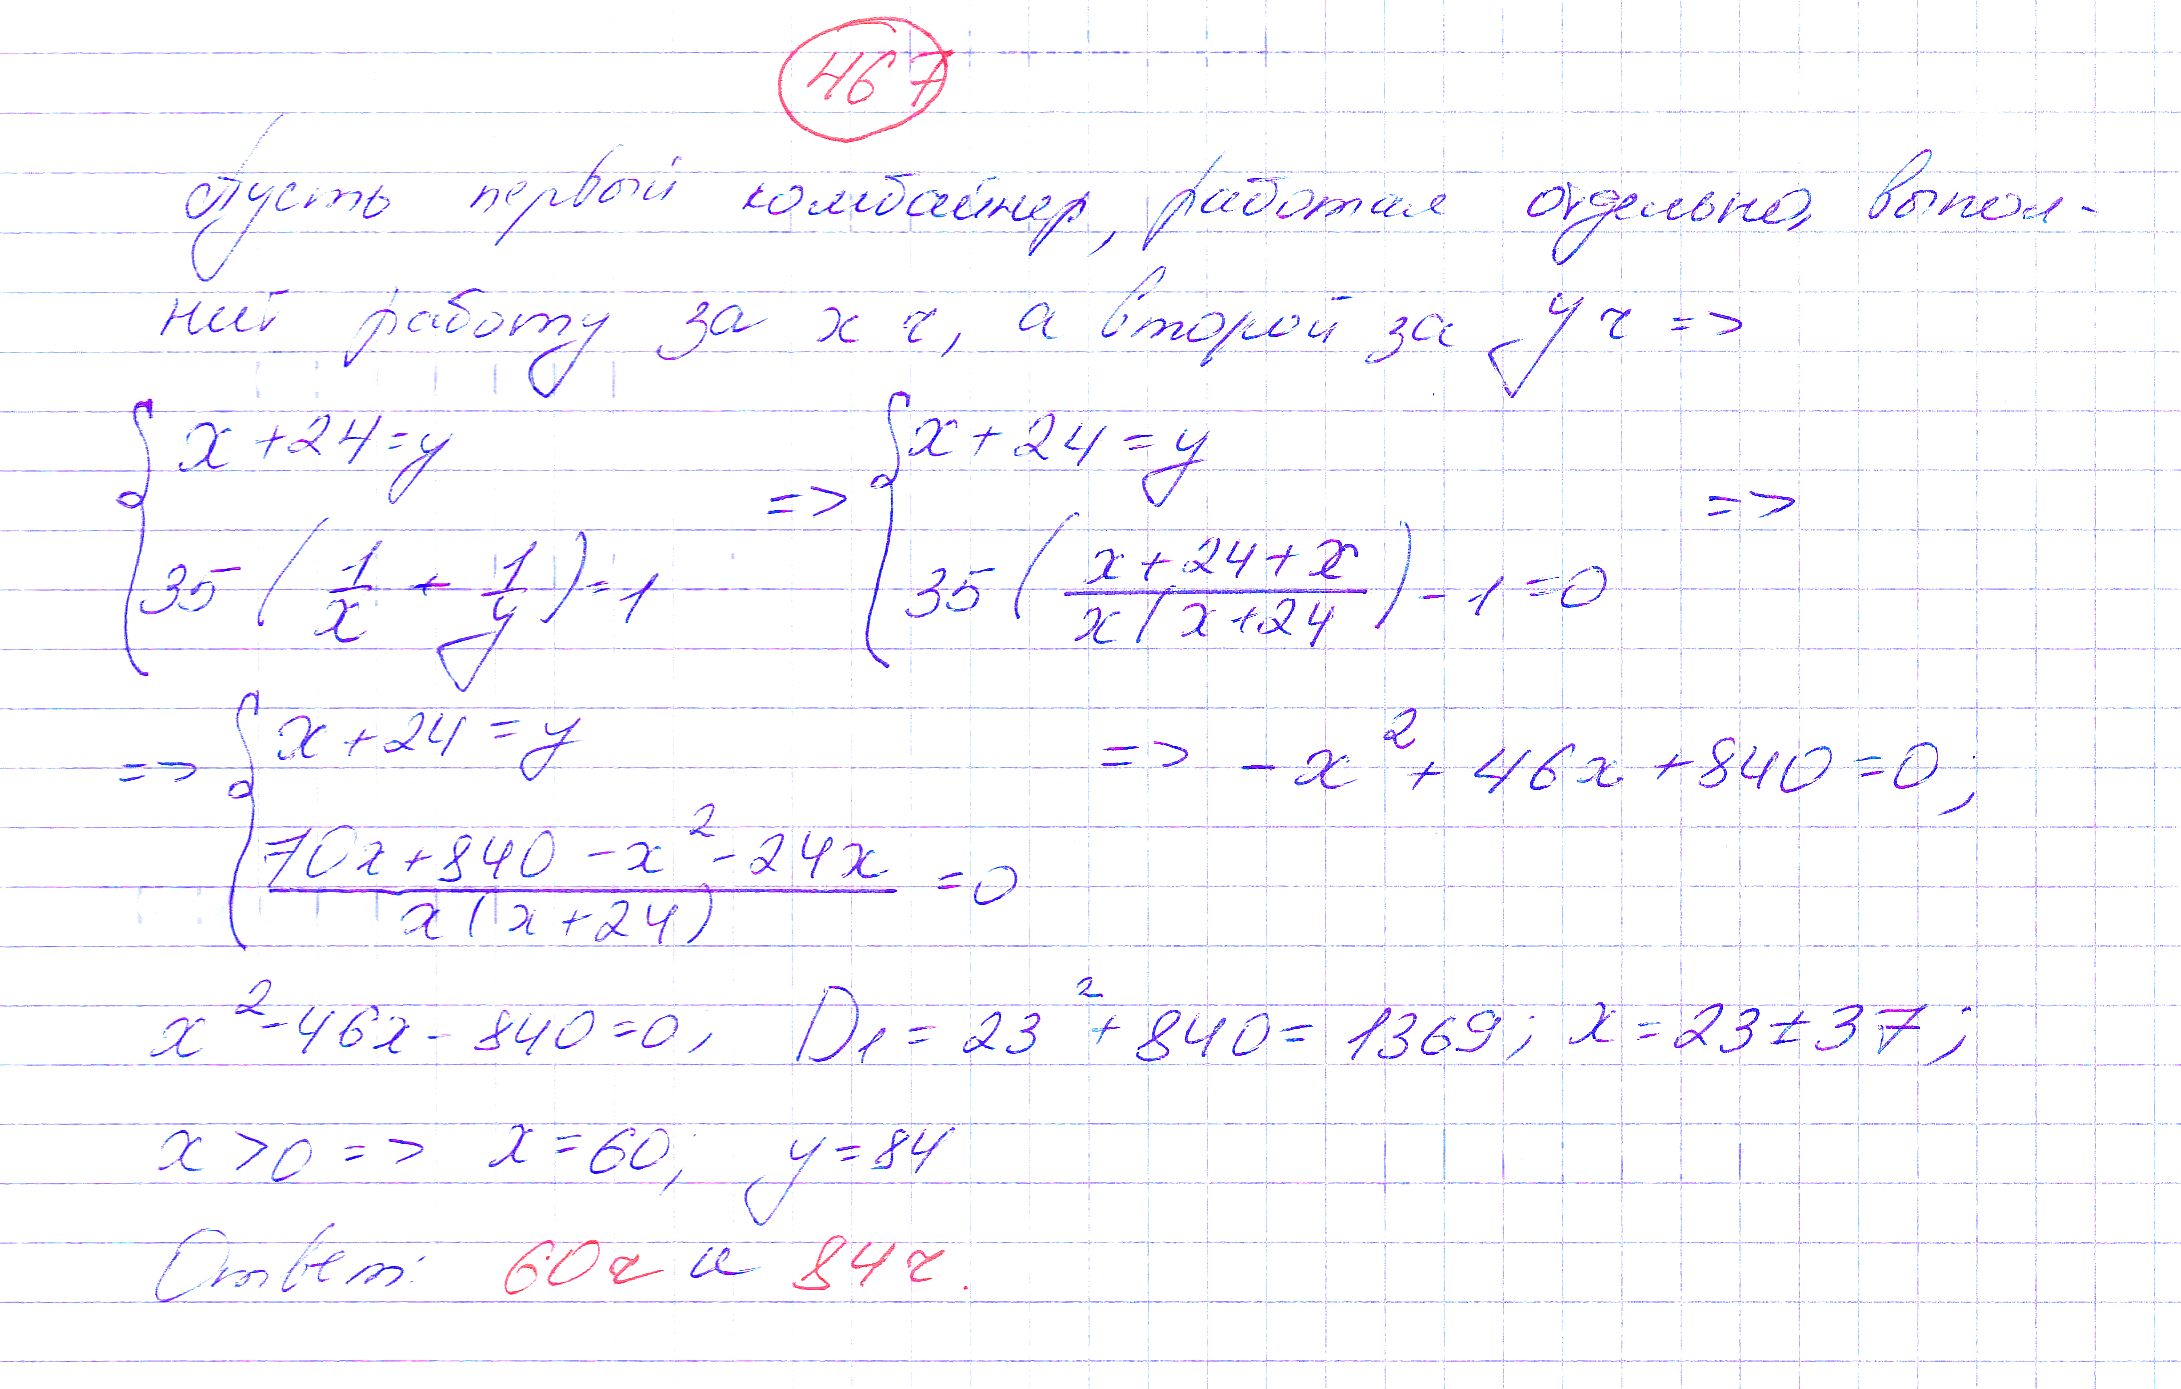 467
Пусть первый комбайнер, работая отдельно, выпол-
нит работу за x ч, а второй за y ч =>
{ x + 24 = y => { x + 24 = y =>
35 ( 1/x + 1/y ) = 1 35 ( (x + 24 + x) / (x(x + 24) ) - 1 = 0
=> { x + 24 = y => -x² + 46x + 840 = 0;
(70x + 840 - x² - 24x) / (x(x + 24)) = 0
x² - 46x - 840 = 0; D₁ = 23² + 840 = 1369; x = 23 ± 37;
x > 0 => x = 60; y = 84
Ответ: 60 ч и 84 ч.